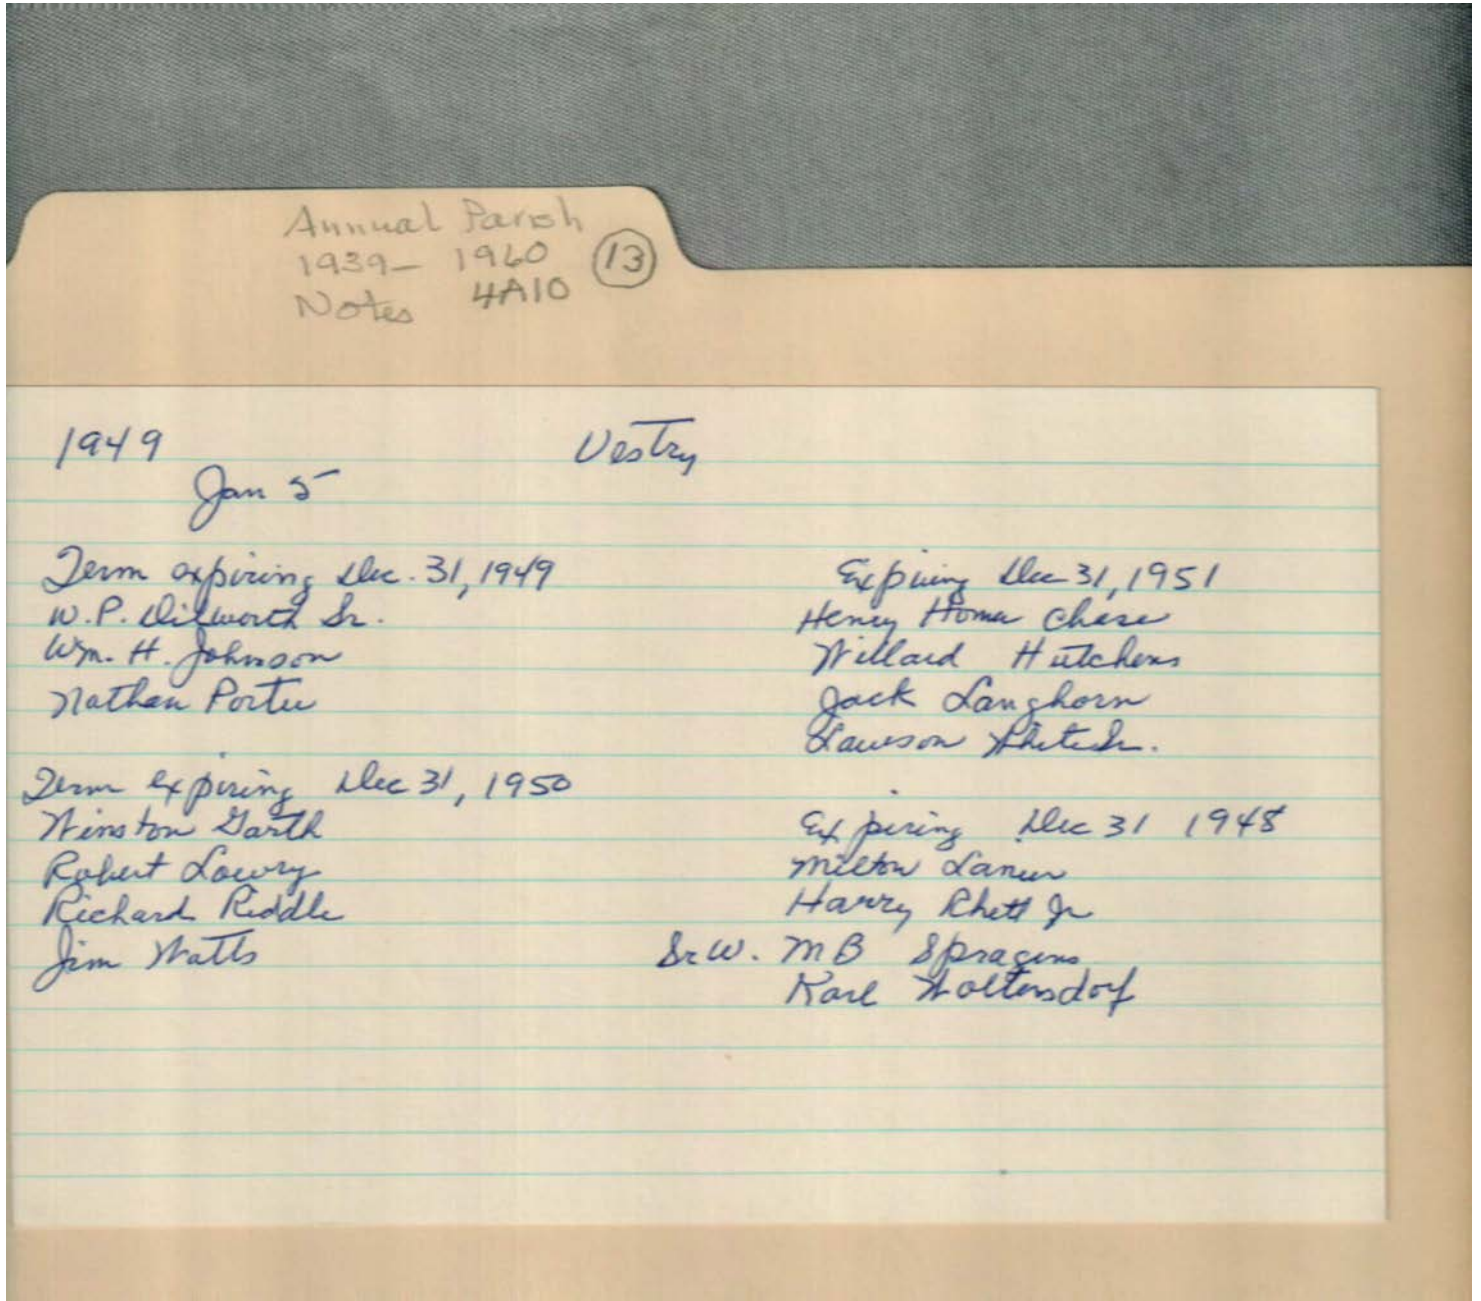 Annual Parish
1939- 1960 13
Notes 4A10
1949 Vestry
Jan 5
Term expiring Dec. 31, 1949
W.P. Dilworth Sr.
Wm. H. Johnson
Nathan Porter
Term expiring Dec 31, 1950
Winston Garth
Robert Lowry
Richard Riddle
Jim Watts
Expiring Dec 31, 1951
Henry Homer Chase
Willard Hutchens
Jack Langhorn
Lawson
Expiring Dec 31 1948
Milton Lanier
Harry Rhett Jr
Sr W. M B Spragins
Karl Woltersdorf